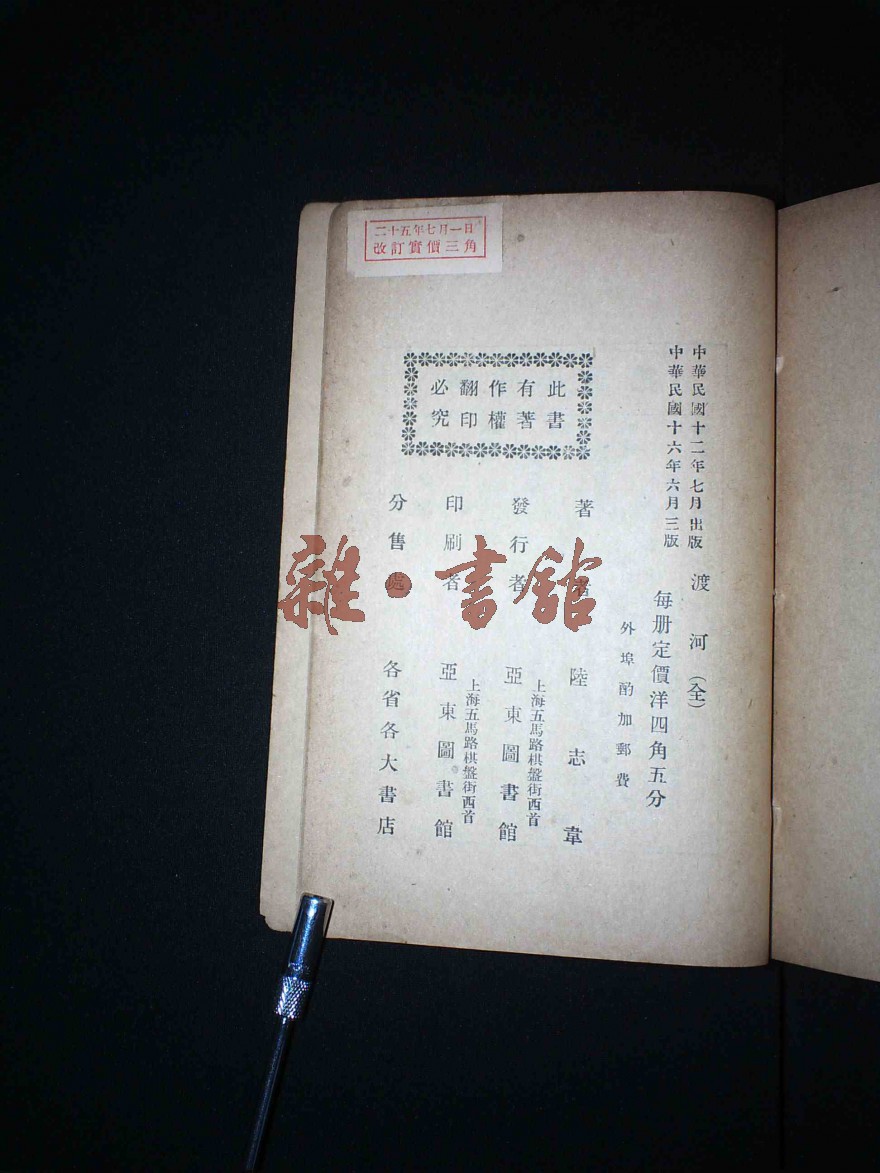 二十五年七月一日
改訂實價三角
中華民國十二年七月出版
中華民國十六年六月三版
渡河（全）
每册定價洋四角五分
外埠酌加郵費
此書
有著
作權
翻印
必究
著者 陸志韋
發行者 上海五馬路棋盤街西首
亞東圖書館
印刷者 上海五馬路棋盤街西首
亞東圖書館
分售處 各省各大書店
雜·書館